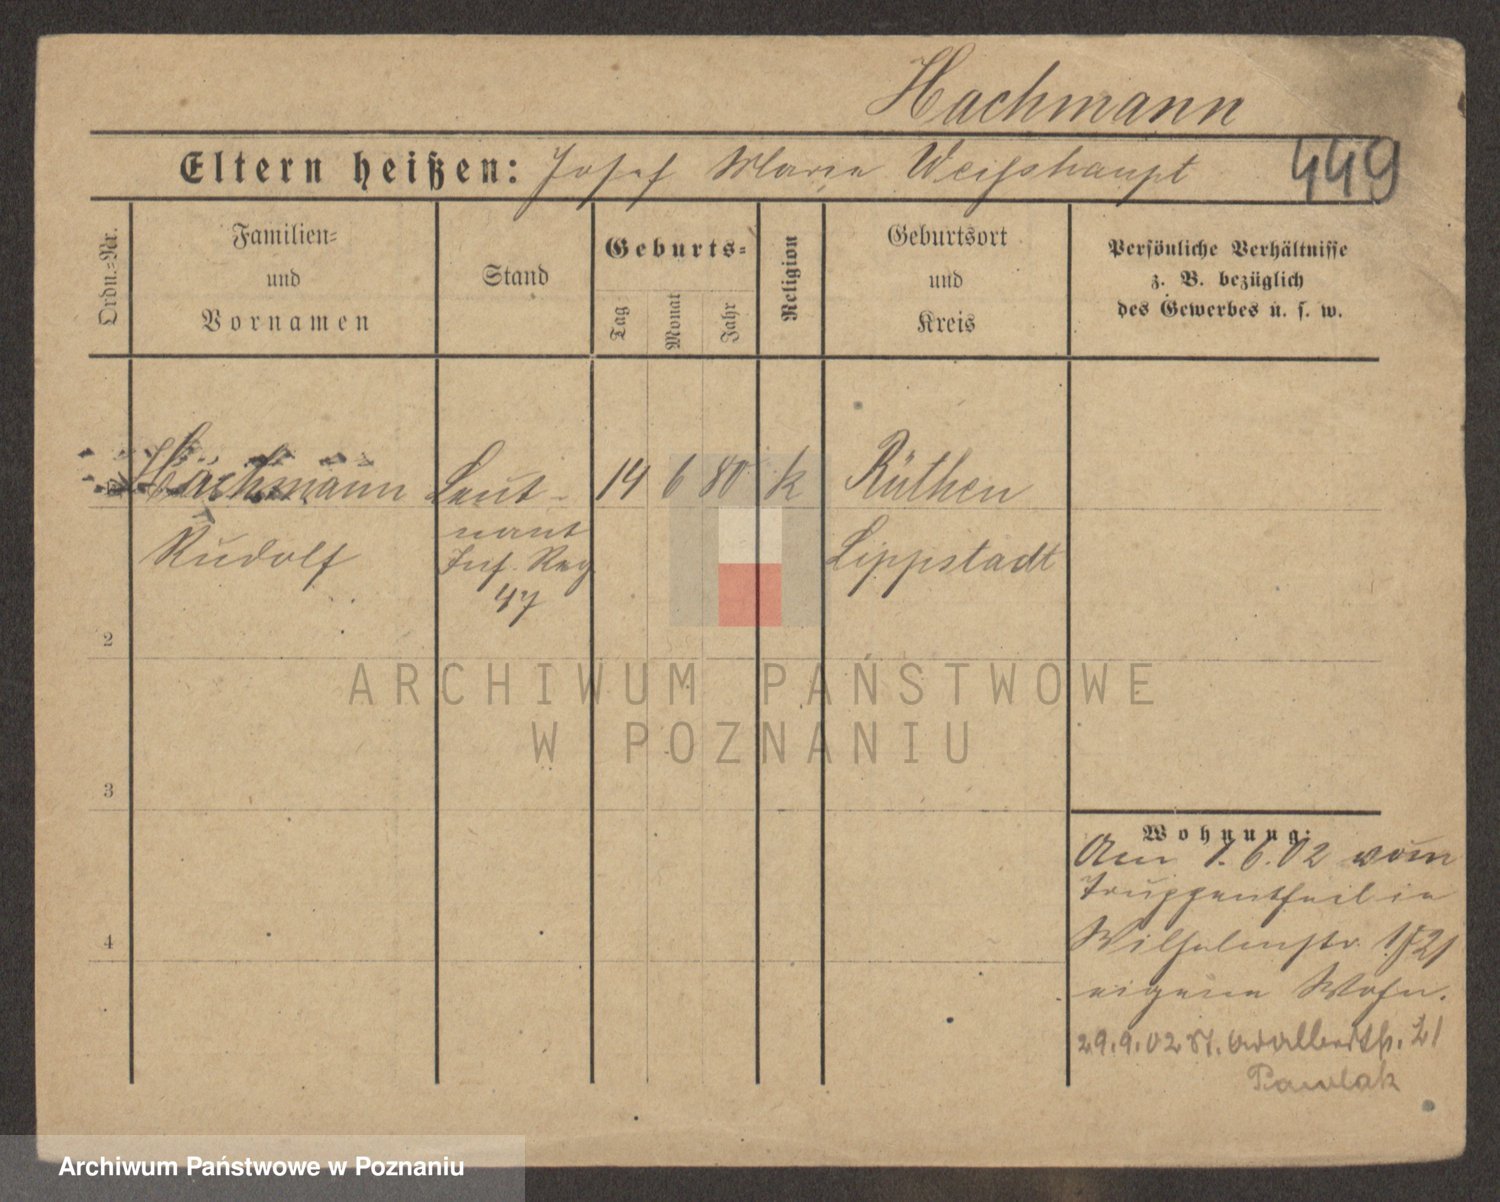 Hachmann
Eltern heißen: Josef Maria Weißhaupt
449
Ordn.-Nr.
Familien-
und
Vornamen
Stand
Geburts-
Tag
Monat
Jahr
Religion
Geburtsort
und
Kreis
Persönliche Verhältnisse
z. B. bezüglich
des Gewerbes u. s. w.
Hachmann
Rudolf
Leut-
nant
Inf. Reg
47
14 6 80 k
Rüthen
Lippstadt
2
3
4
Wohnung:
Am 1.6.02 vom
Truppentheil in
Wilhelmstr.
eigene Wohn.
29.9.02 St. Adalbertstr. 21
Pawlak
ARCHIWUM PAŃSTWOWE
W POZNANIU
Archiwum Państwowe w Poznaniu